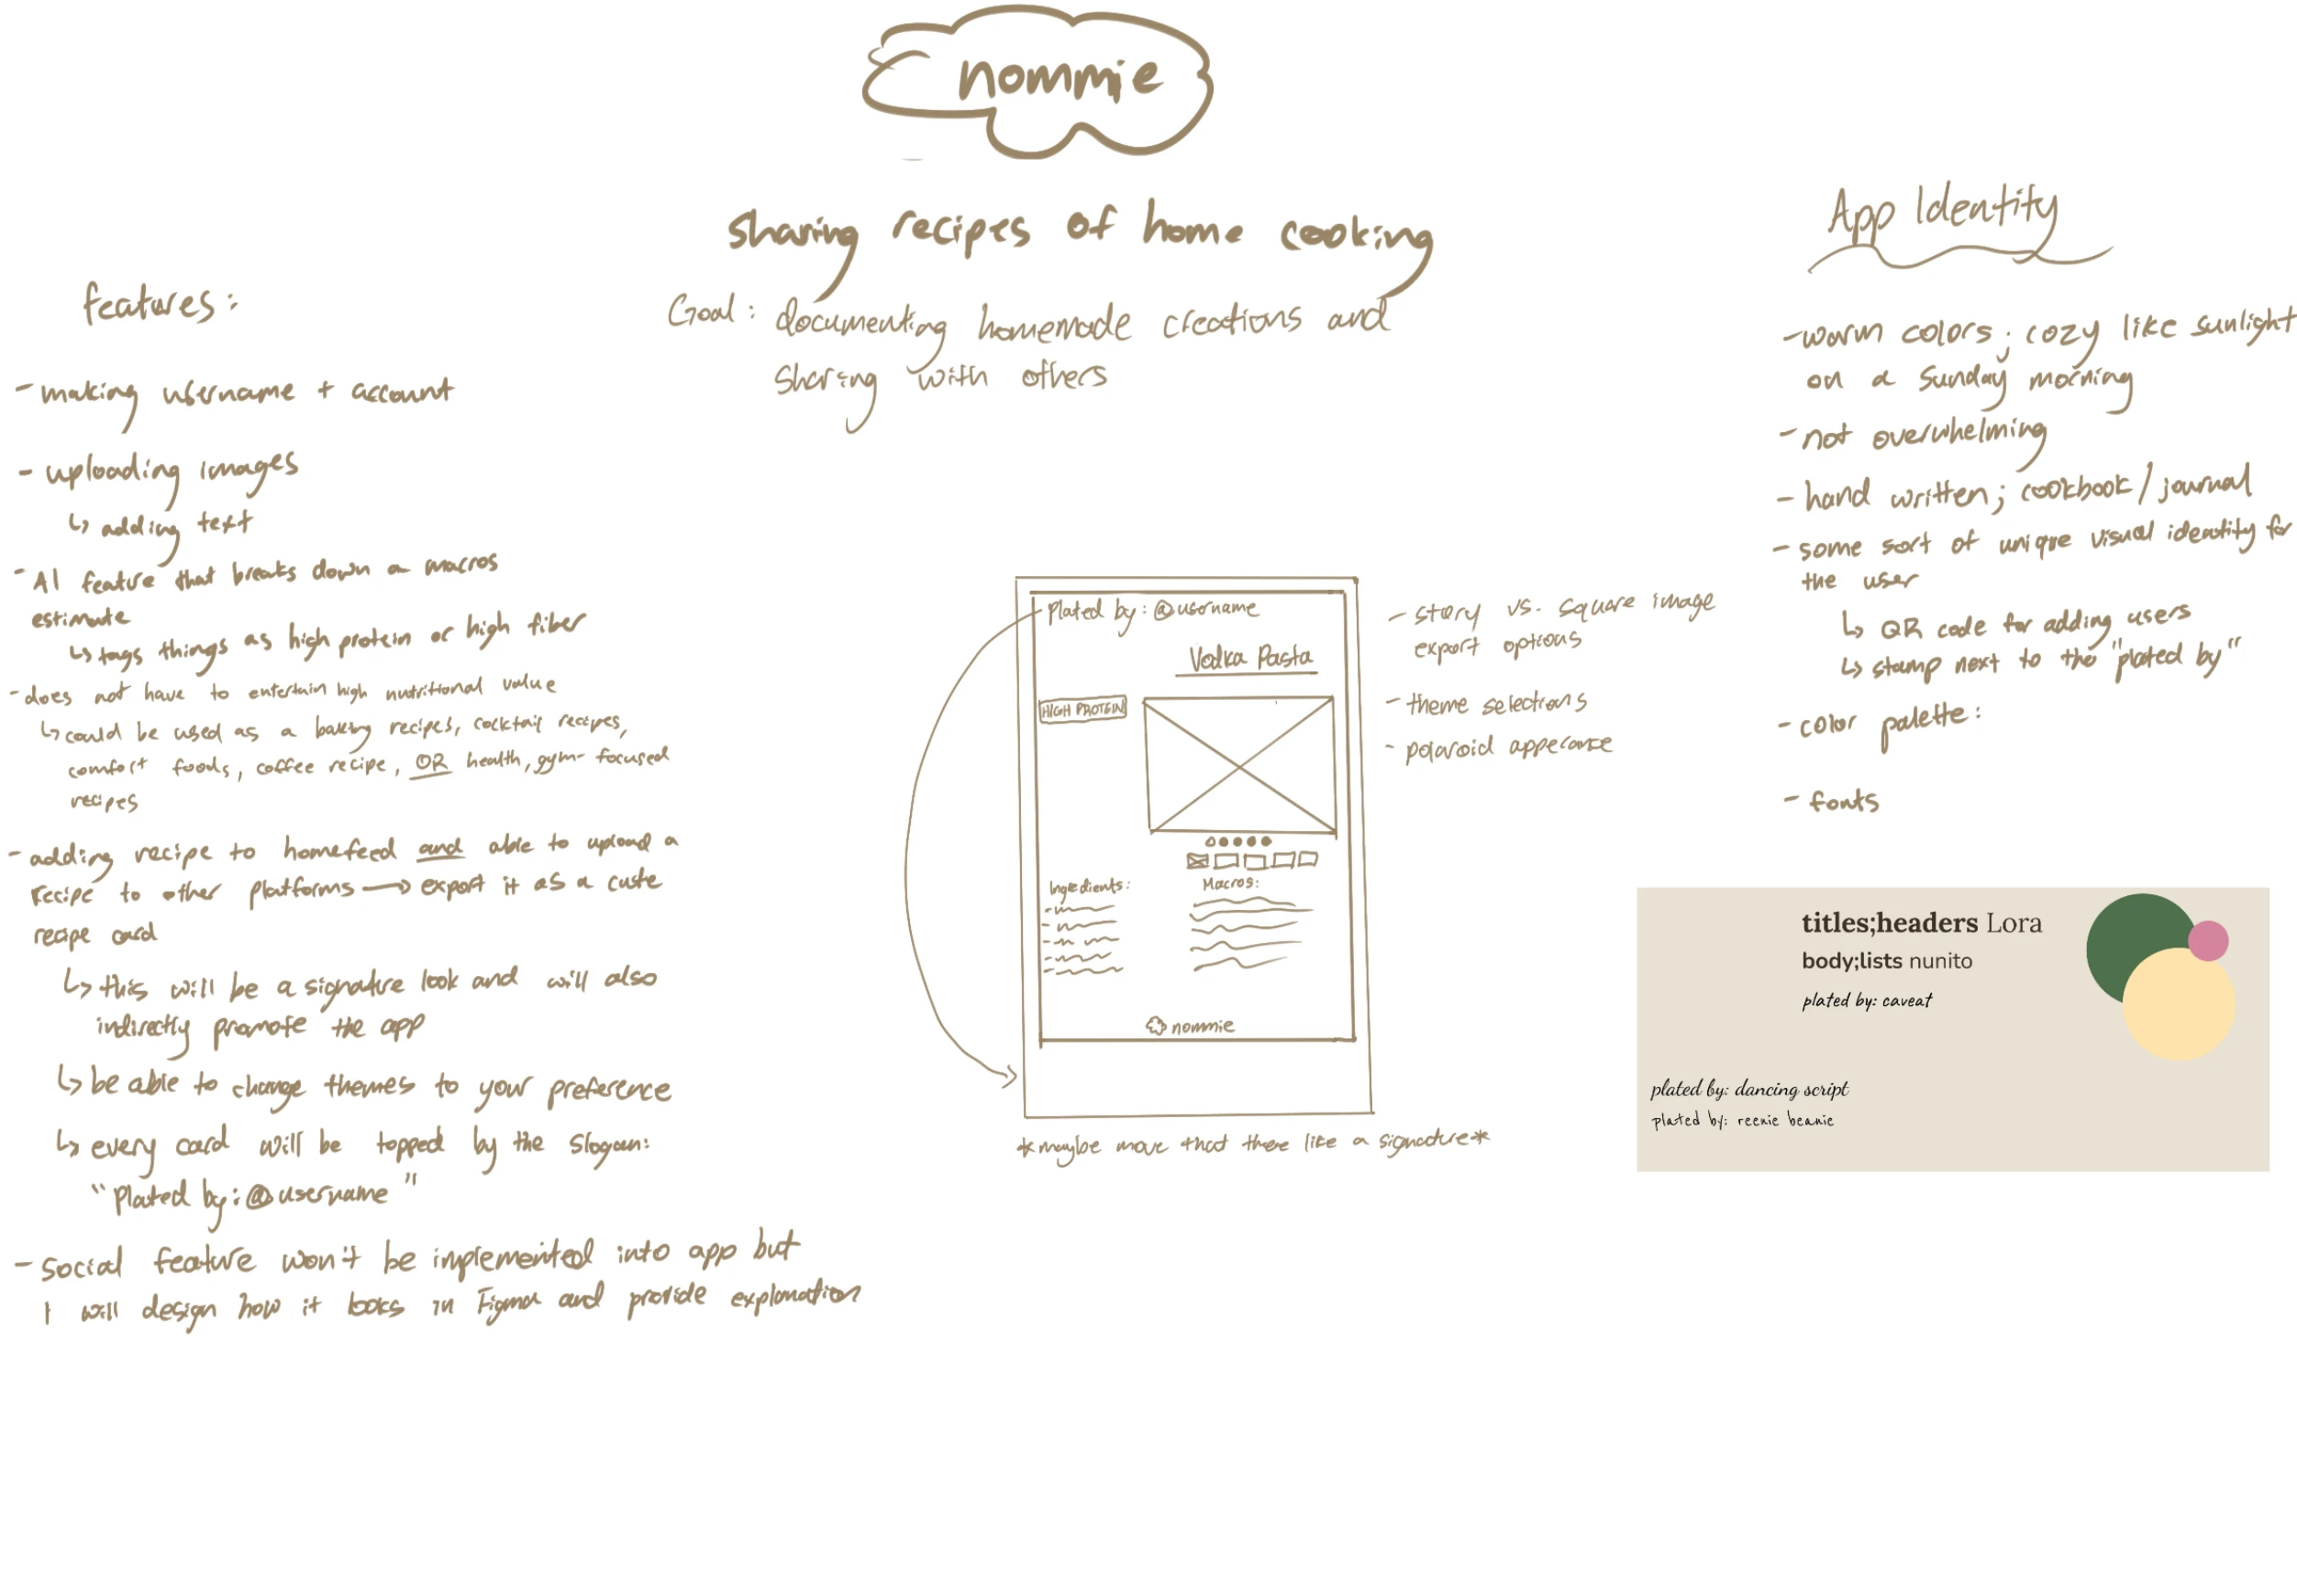 nommie
sharing recipes of home cooking
Goal: documenting homemade creations and
sharing with others
features:
- making username + account
- uploading images
↳ adding text
- AI feature that breaks down a macros
estimate
↳ tags things as high protein or high fiber
- does not have to entertain high nutritional value
↳ could be used as a baking recipes, cocktail recipes,
comfort foods, coffee recipe, OR health, gym-focused
recipes
- adding recipe to homefeed and able to upload a
recipe to other platforms → export it as a cute
recipe card
↳ this will be a signature look and will also
indirectly promote the app
↳ be able to change themes to your preference
↳ every card will be topped by the slogan:
"Plated by: @username"
- social feature won't be implemented into app but
I will design how it looks in Figma and provide explanation
Plated by: @username
Vodka Pasta
HIGH PROTEIN
Ingredients:
Macros:
nommie
*maybe move that there like a signature*
- story vs. square image
export options
- theme selections
- polaroid apperance
App Identity
- warm colors; cozy like sunlight
on a Sunday morning
- not overwhelming
- hand written; cookbook/journal
- some sort of unique visual identity for
the user
↳ QR code for adding users
↳ stamp next to the "plated by"
- color palette:
- fonts
titles;headers Lora
body;lists nunito
plated by: caveat
plated by: dancing script
plated by: reenie beanie